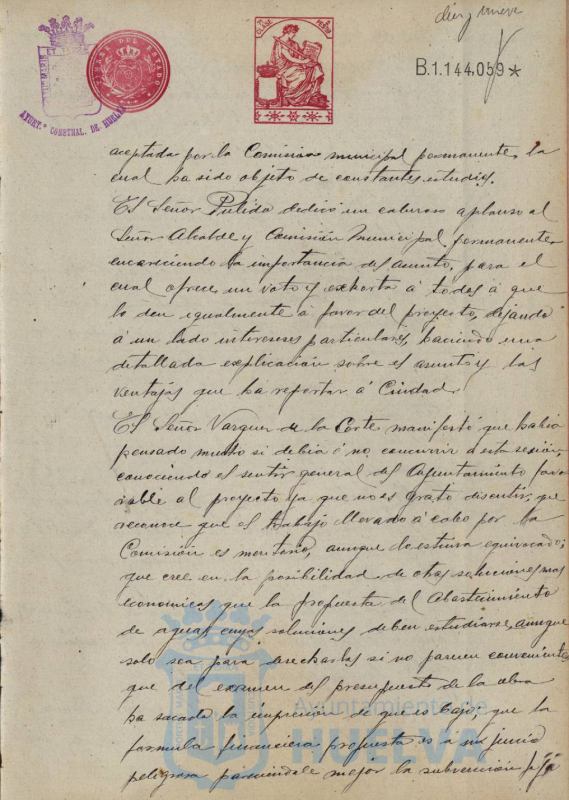 diez y nueve
CLASE 8ª
TIMBRE DEL ESTADO
B.1.144.059*
AYUNT.º CONSTNAL. DE HUELVA
aceptada por la Comision municipal permanente, la
cual ha sido objeto de constantes estudios.
El Señor Pulido dedicó un caluroso aplauso al
Señor Alcalde y Comisión Municipal permanente
encareciendo la importancia del asunto, para el
cual ofrece un voto y exhorta á todos á que
lo den igualmente á favor del proyecto, dejando
á un lado intereses particulares, haciendo una
detallada explicación sobre el asunto y las
ventajas que ha reportar á Ciudad.
El Señor Vazquez de la Corte manifestó que habia
pensado mucho si debia ó no, concurrir a esta sesión,
conociendo el sentir general del Ayuntamiento favo
rable al proyecto ya que no es grato discutir, que
reconoce que el trabajo llevado á cabo por la
Comisión es meritorio, aunque lo estima equivocado;
que cree en la posibilidad de otras soluciones mas
economicas que la propuesta del Abastecimiento
de aguas cuyas soluciones deben estudiarse, aunque
solo sea para desecharlas si no parecen convenientes
que del examen del presupuesto de la obra
ha sacado la impresión de que es bajo, que la
formula financiera propuesta es a su juicio
peligrosa pareciendole mejor la subvención fija
Ayuntamiento de
HUELVA